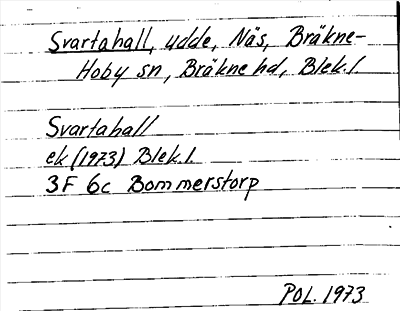 Svartahall, udde, Näs, Bräkne-
Hoby sn, Bräkne hd, Blek. l.
Svartahall
ek (1973) Blek. l.
3F 6c Bommerstorp
POL. 1973